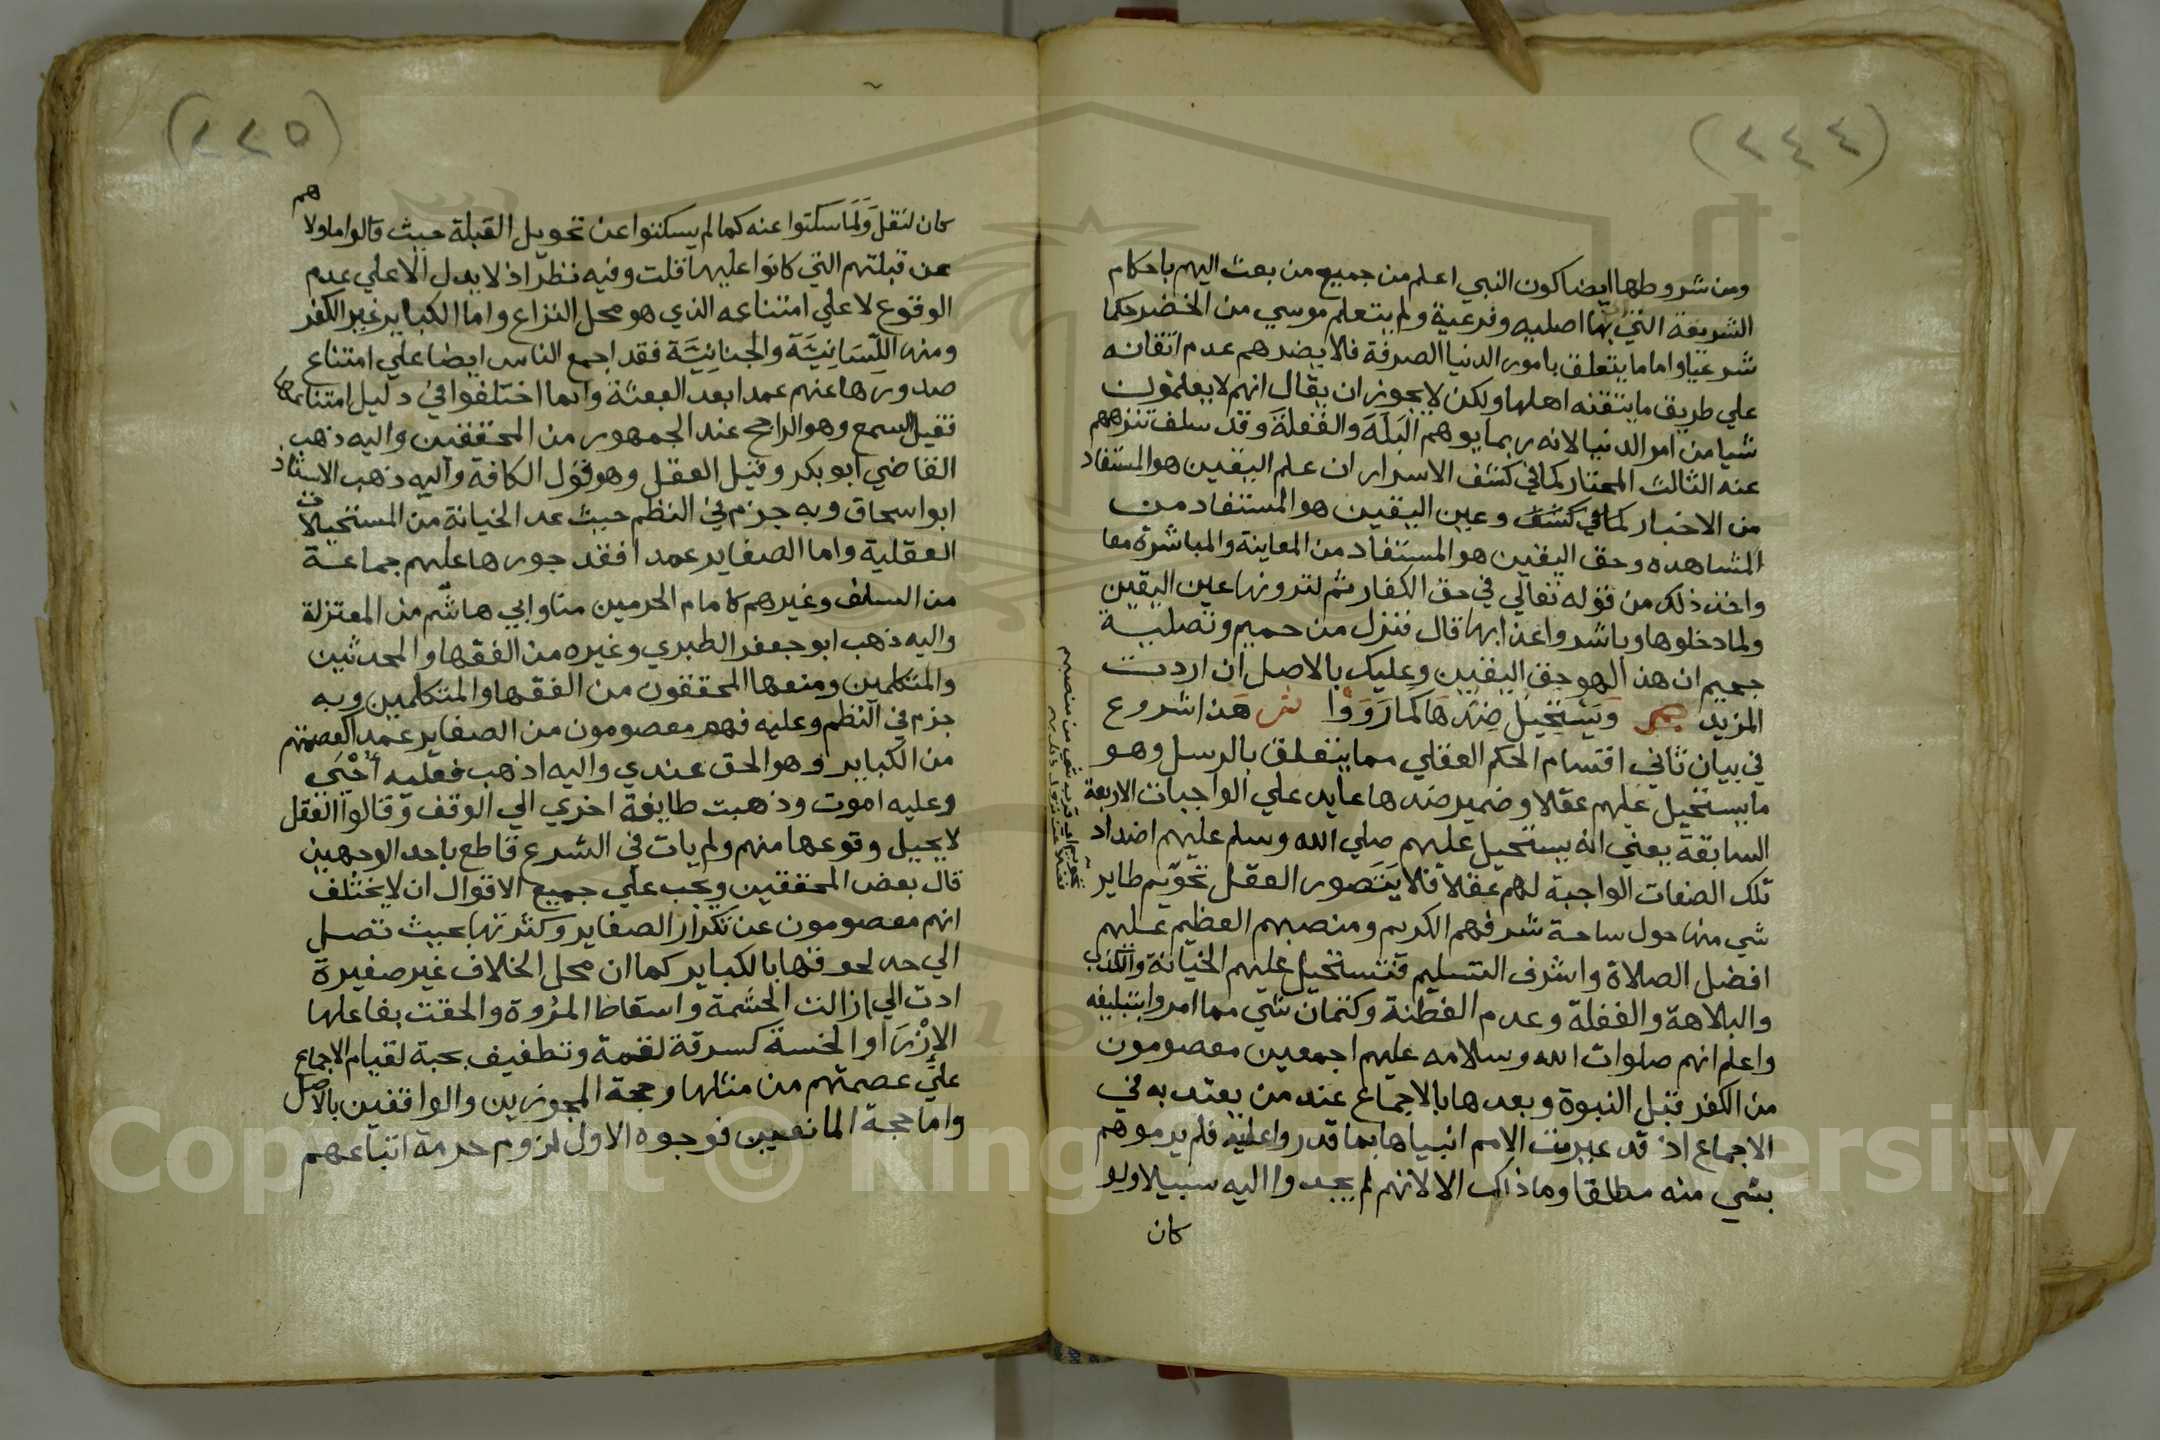 (٢٤٤)
ومن شروطها ايضا كون النبي اعلم من جميع من بعث اليهم باحكام
الشريعة التي بها اصليه وفرعية ولم يتعلم موسي من الخضر حكما
شرعيا واما ما يتعلق بامور الدنيا الصرفة فلا يضرهم عدم اتقانه
علي طريق ما يتقنه اهلها ولكن لا يجوز ان يقال انهم لا يعلمون
شيا من امر الدنيا لانه ربما يوهم البَلَهَ والغفلةَ وقد سلف تنزههم
عنه الثالث المختار كما في كشف الاسرار ان علم اليقين هو المستفاد
من الاخبار كما في كشف وعين اليقين هو المستفاد من
المشاهده وحق اليقين هو المستفاد من المعاينة والمباشرة معا
واخذ ذلك من قوله تعالي في حق الكفار ثم لترونها عين اليقين
ولما دخلوها وباشروا عذابها قال فنزل من حميم وتصلية
جحيم ان هذا لهو حق اليقين وعليك بالاصل ان اردت
المزيد ص وَيَسْتَحِيلُ ضِدُّهَا كَمَا رَوَوْا ش هذا شروع
في بيان ثاني اقتسام الحكم العقلي مما يتعلق بالرسل وهو
ما يستحيل عليهم عقلا وضمير ضدها عايد علي الواجبات الاربعة
السابقة يعني انه يستحيل عليهم صلي الله وسلم عليهم اضداد
تلك الصفات الواجبة لهم عقلا فلا يَتَصور العقل تحويم طاير
شي منها حول ساحة شرفهم الكريم ومنصبهم العظيم عليهم
افضل الصلاة واشرف التسليم فتستحيل عليهم الخيانة والكذب
والبلاهة والغفلة وعدم الفطنة وكتمان شي مما امروا بتبليغه
واعلم انهم صلوات الله وسلامه عليهم اجمعين معصومون
من الكفر قبل النبوة وبعدها بالاجماع عند من يعتد به في
الاجماع اذ قد عيرت الامم انبياها بما قدروا عليه فلم يرموهم
بشي منه مطلقا وما ذاك الا لانهم لم يجدوا اليه سبيلا ولو
كان
تحويم اي قرب شي من منصبهم
(٢٤٥)
كان لنقل وَلَمَا سكتوا عنه كما لم يسكتوا عن تحويل القبلة حيث قالوا ما ولاهم
عن قبلتهم التي كانوا عليها قلت وفيه نظر اذ لا يدل الا علي عدم
الوقوع لا علي امتناعه الذي هو محل النزاع واما الكباير غير الكفر
ومنه اللِّسَانِيَّة والجنانِيَّة فقد اجمع الناس ايضا علي امتناع
صدورها عنهم عمدا بعد البعثة وانما اختلفوا في دليل امتناعها
فقيل السمع وهو الراجح عند الجمهور من المحققين واليه ذهب
القاضي ابو بكر وقيل العقل وهو قول الكافة واليه ذهب الاستاذ
ابو اسحاق وبه جزم في النظم حيث عد الخيانة من المستحيلات
العقلية واما الصغاير عمدا فقد جوزها عليهم جماعة
من السلف وغيرهم كامام الحرمين منا وابي هاشم من المعتزلة
واليه ذهب ابو جعفر الطبري وغيره من الفقها والمحدثين
والمتكلمين ومنعها المحققون من الفقها والمتكلمين وبه
جزم في النظم وعليه فهم معصومون من الصغاير عمدا كعصمتهم
من الكباير وهو الحق عندي واليه اذهب فعليه أحْيَي
وعليه اموت وذهبت طايفة اخري الي الوقف وقالوا العقل
لا يحيل وقوعها منهم ولم يات في الشرع قاطع باحد الوجهين
قال بعض المحققين ويجب علي جميع الاقوال ان لا يختلف
انهم معصومون عن تكرار الصغاير وكثرتها بحيث تصل
الي حد لحوقها بالكباير كما ان محل الخلاف غير صغيرة
ادت الي ازالت الحشمة واسقاط المرُوة والحقت بفاعلها
الازْرَا والخسة كسرقة لقمة وتطفيف بحبة لقيام الاجماع
علي عصمتهم من مثلها وحجة المجوزين والواقفين بالاصل
واما حجة المانعين فوجوه الاول لزوم حرمة اتباعهم
Copyright © King Saud University